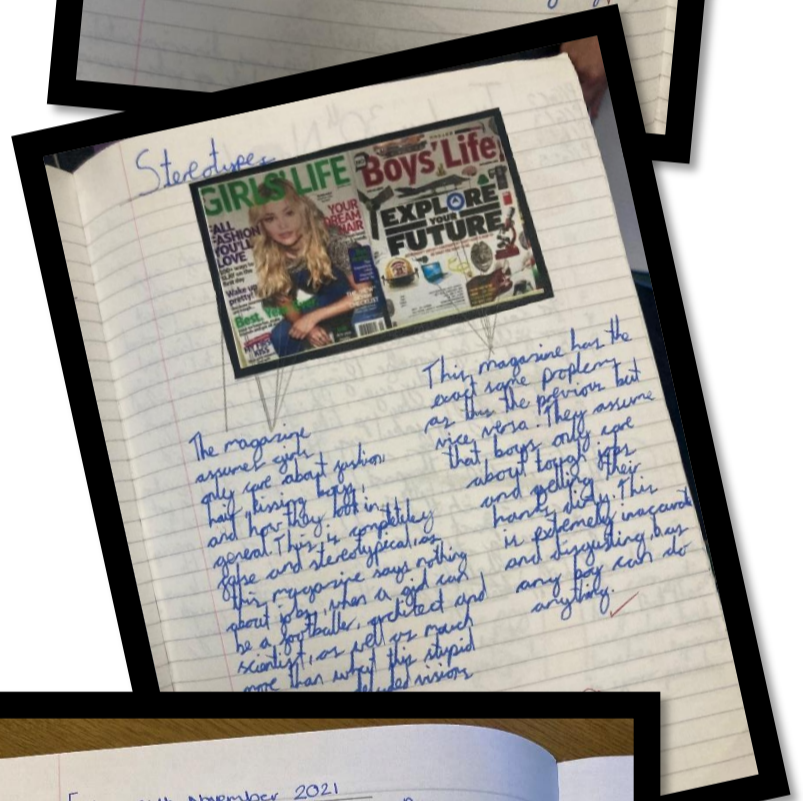 Stereotypes
GIRLS' LIFE
ALL
FASHION
YOU'LL
LOVE
YOUR
DREAM
HAIR
Wake up
pretty!
Boys' Life
EXPLORE
YOUR
FUTURE
The magazine
assumes girls
only care about fashion,
hair, kissing boys,
and how they look in
general. This is completely
false and stereotypical, as
this magazine says nothing
about jobs, when a girl can
be a footballer, architect and
scientist, as well as much
more than what this stupid
visions
This magazine has the
exact same problem
as this the previous but
vice versa. They assume
that boys only care
about tough jobs
and getting their
hands dirty. This
is extemely inaccurate
and disgusting, as
any boy can do
anything.
November 2021